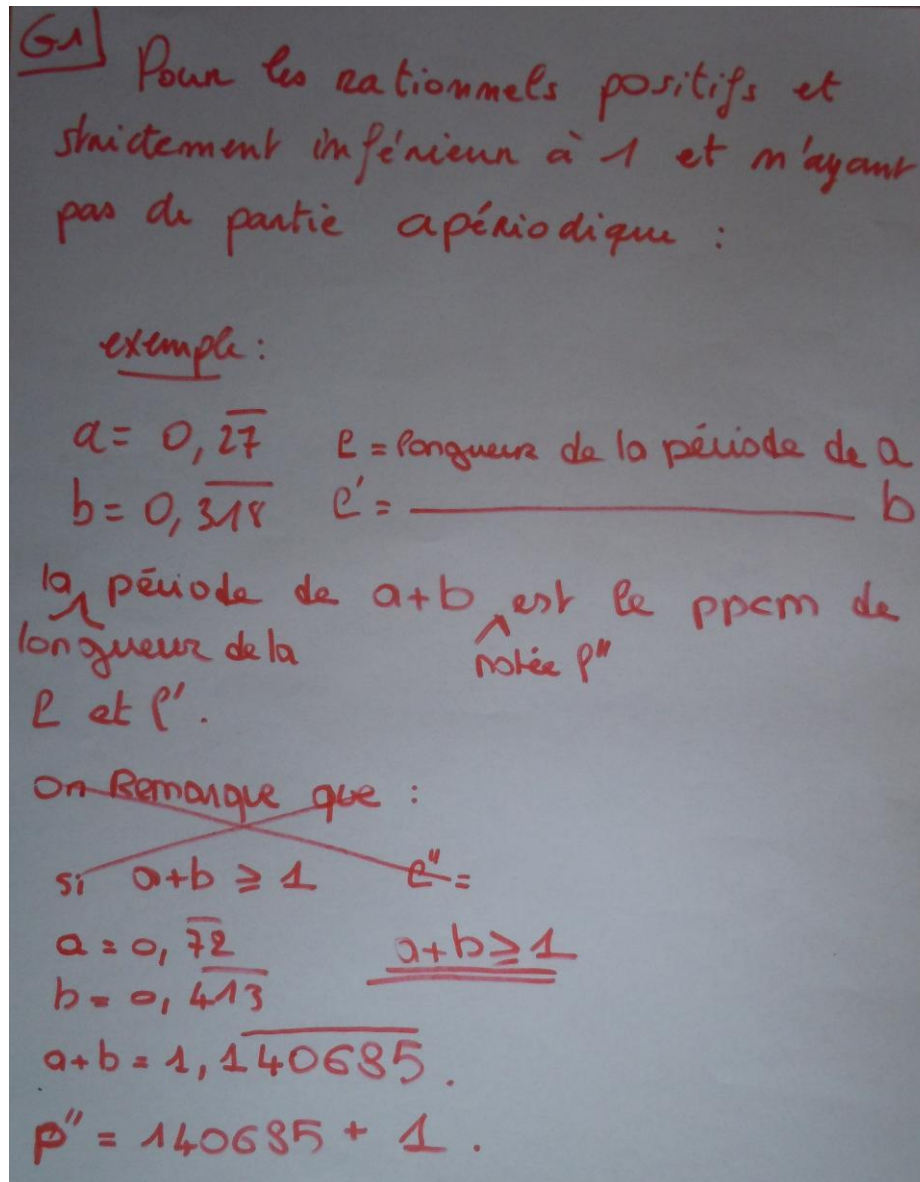 G1 Pour les rationnels positifs et
strictement inférieur à 1 et n'ayant
pas de partie apériodique :
exemple :
a = 0,2̅7̅ l = longueur de la période de a
b = 0,3̅1̅8̅ l' = ———————— b
la période de a+b est le ppcm de
longueur de la notée l"
l et l'.
On Remarque que :
si a+b ⩾ 1 l" =
a = 0,7̅2̅ a+b ⩾ 1
b = 0,4̅1̅3̅
a+b = 1,1̅4̅0̅6̅8̅5̅.
p" = 140685 + 1.